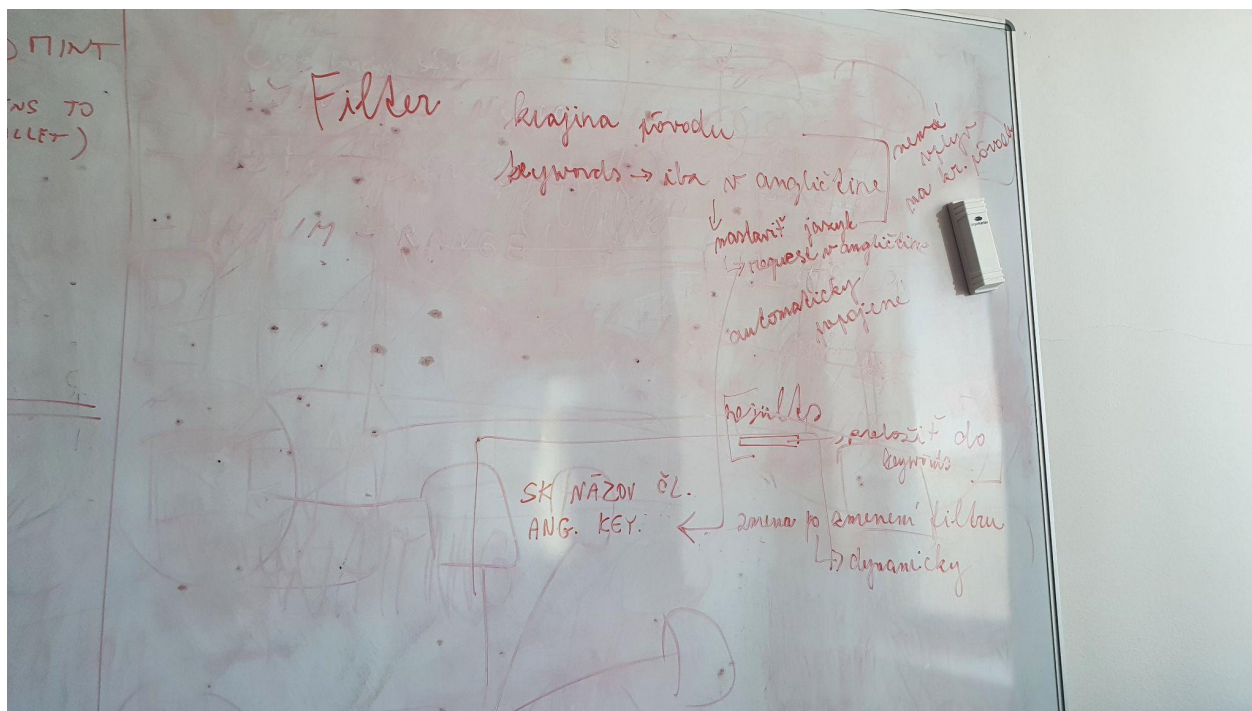 MINT
NS TO
LLET)
Filter
krajina pôvodu
keywords → iba v angličtine
nemá
vplyv
na kr. pôvodu
nastaviť jazyk
↳ request v angličtine
automaticky
zapojené
results
preložiť do
keywords
SK NÁZOV ČL.
ANG. KEY.
zmena po zmenení filtru
↳ dynamicky